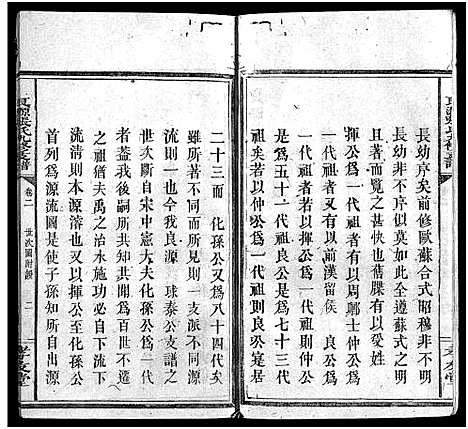 長幼序矣前修歐蘇合式昭穆非不明
長幼非不序似莫如此全遵蘇式之明
著而覽之甚快也舊牒有以受姓
揮公爲一代祖者有以周鄲士仲公爲
一代祖者又有以前漢留侯
良公爲一代祖以揮公爲一代祖則仲公
爲五十一代祖良公是爲七十三代
祖矣若以仲公爲一代祖則良公爲
二十三而化孫公又爲八十四代矣
雖所著不同而所則一支派不同源
流則同也今我良源 球泰公支譜之
世次斷自宋中憲大夫化孫公爲一代
者蓋我後嗣所共知共聞爲百世不遷
之祖猶夫禹之治水施功必自下而上下
流清則本源濬也又以揮公至化孫公
首列爲源流圖是使子孫知所自出源
卷二
世次圖附録
二
孝友堂